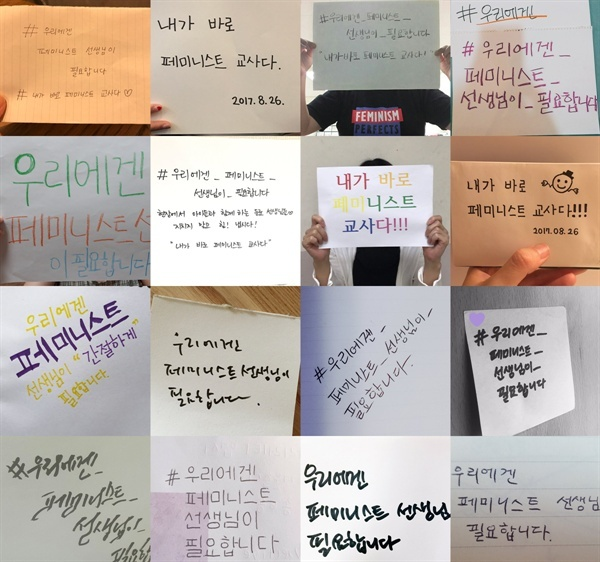 # 우리에겐
페미니스트 선생님이
필요합니다
# 내가 바로 페미니스트 교사다♡
내가 바로
페미니스트 교사다.
2017.8.26.
#우리에겐_페미니스트_
선생님이_필요합니다
"내가 바로 페미니스트 교사다!"
FEMINISM
PERFECTS
#우리에겐
#우리에겐_
페미니스트_
선생님이_필요합니다
우리에겐
페미니스트 선
이 필요합니다
#우리에겐_페미니스트_
선생님이_필요합니다
현장에서 아이들과 함께 하는 동료 선생님들♡
지치지 말고 힘! 냅시다!
"내가 바로 페미니스트 교사다"
내가 바로
페미니스트
교사다!!!
내가 바로
페미니스트 교사다!!!
2017.08.26
우리에겐
페미니스트
선생님이 "간절하게"
필요합니다
우리에겐
페미니스트 선생님이
필요합니다.
#우리에겐_
페미니스트_선생님이_
필요합니다.
#우리에겐_
페미니스트_
선생님이_
필요합니다
#우리에겐_
페미니스트_
선생님이_
필요합
#우리에겐
페미니스트
선생님이
필요합니다
우리에겐
페미니스트 선생님
필요합니다
우리에겐
페미니스트 선생
필요합니다.